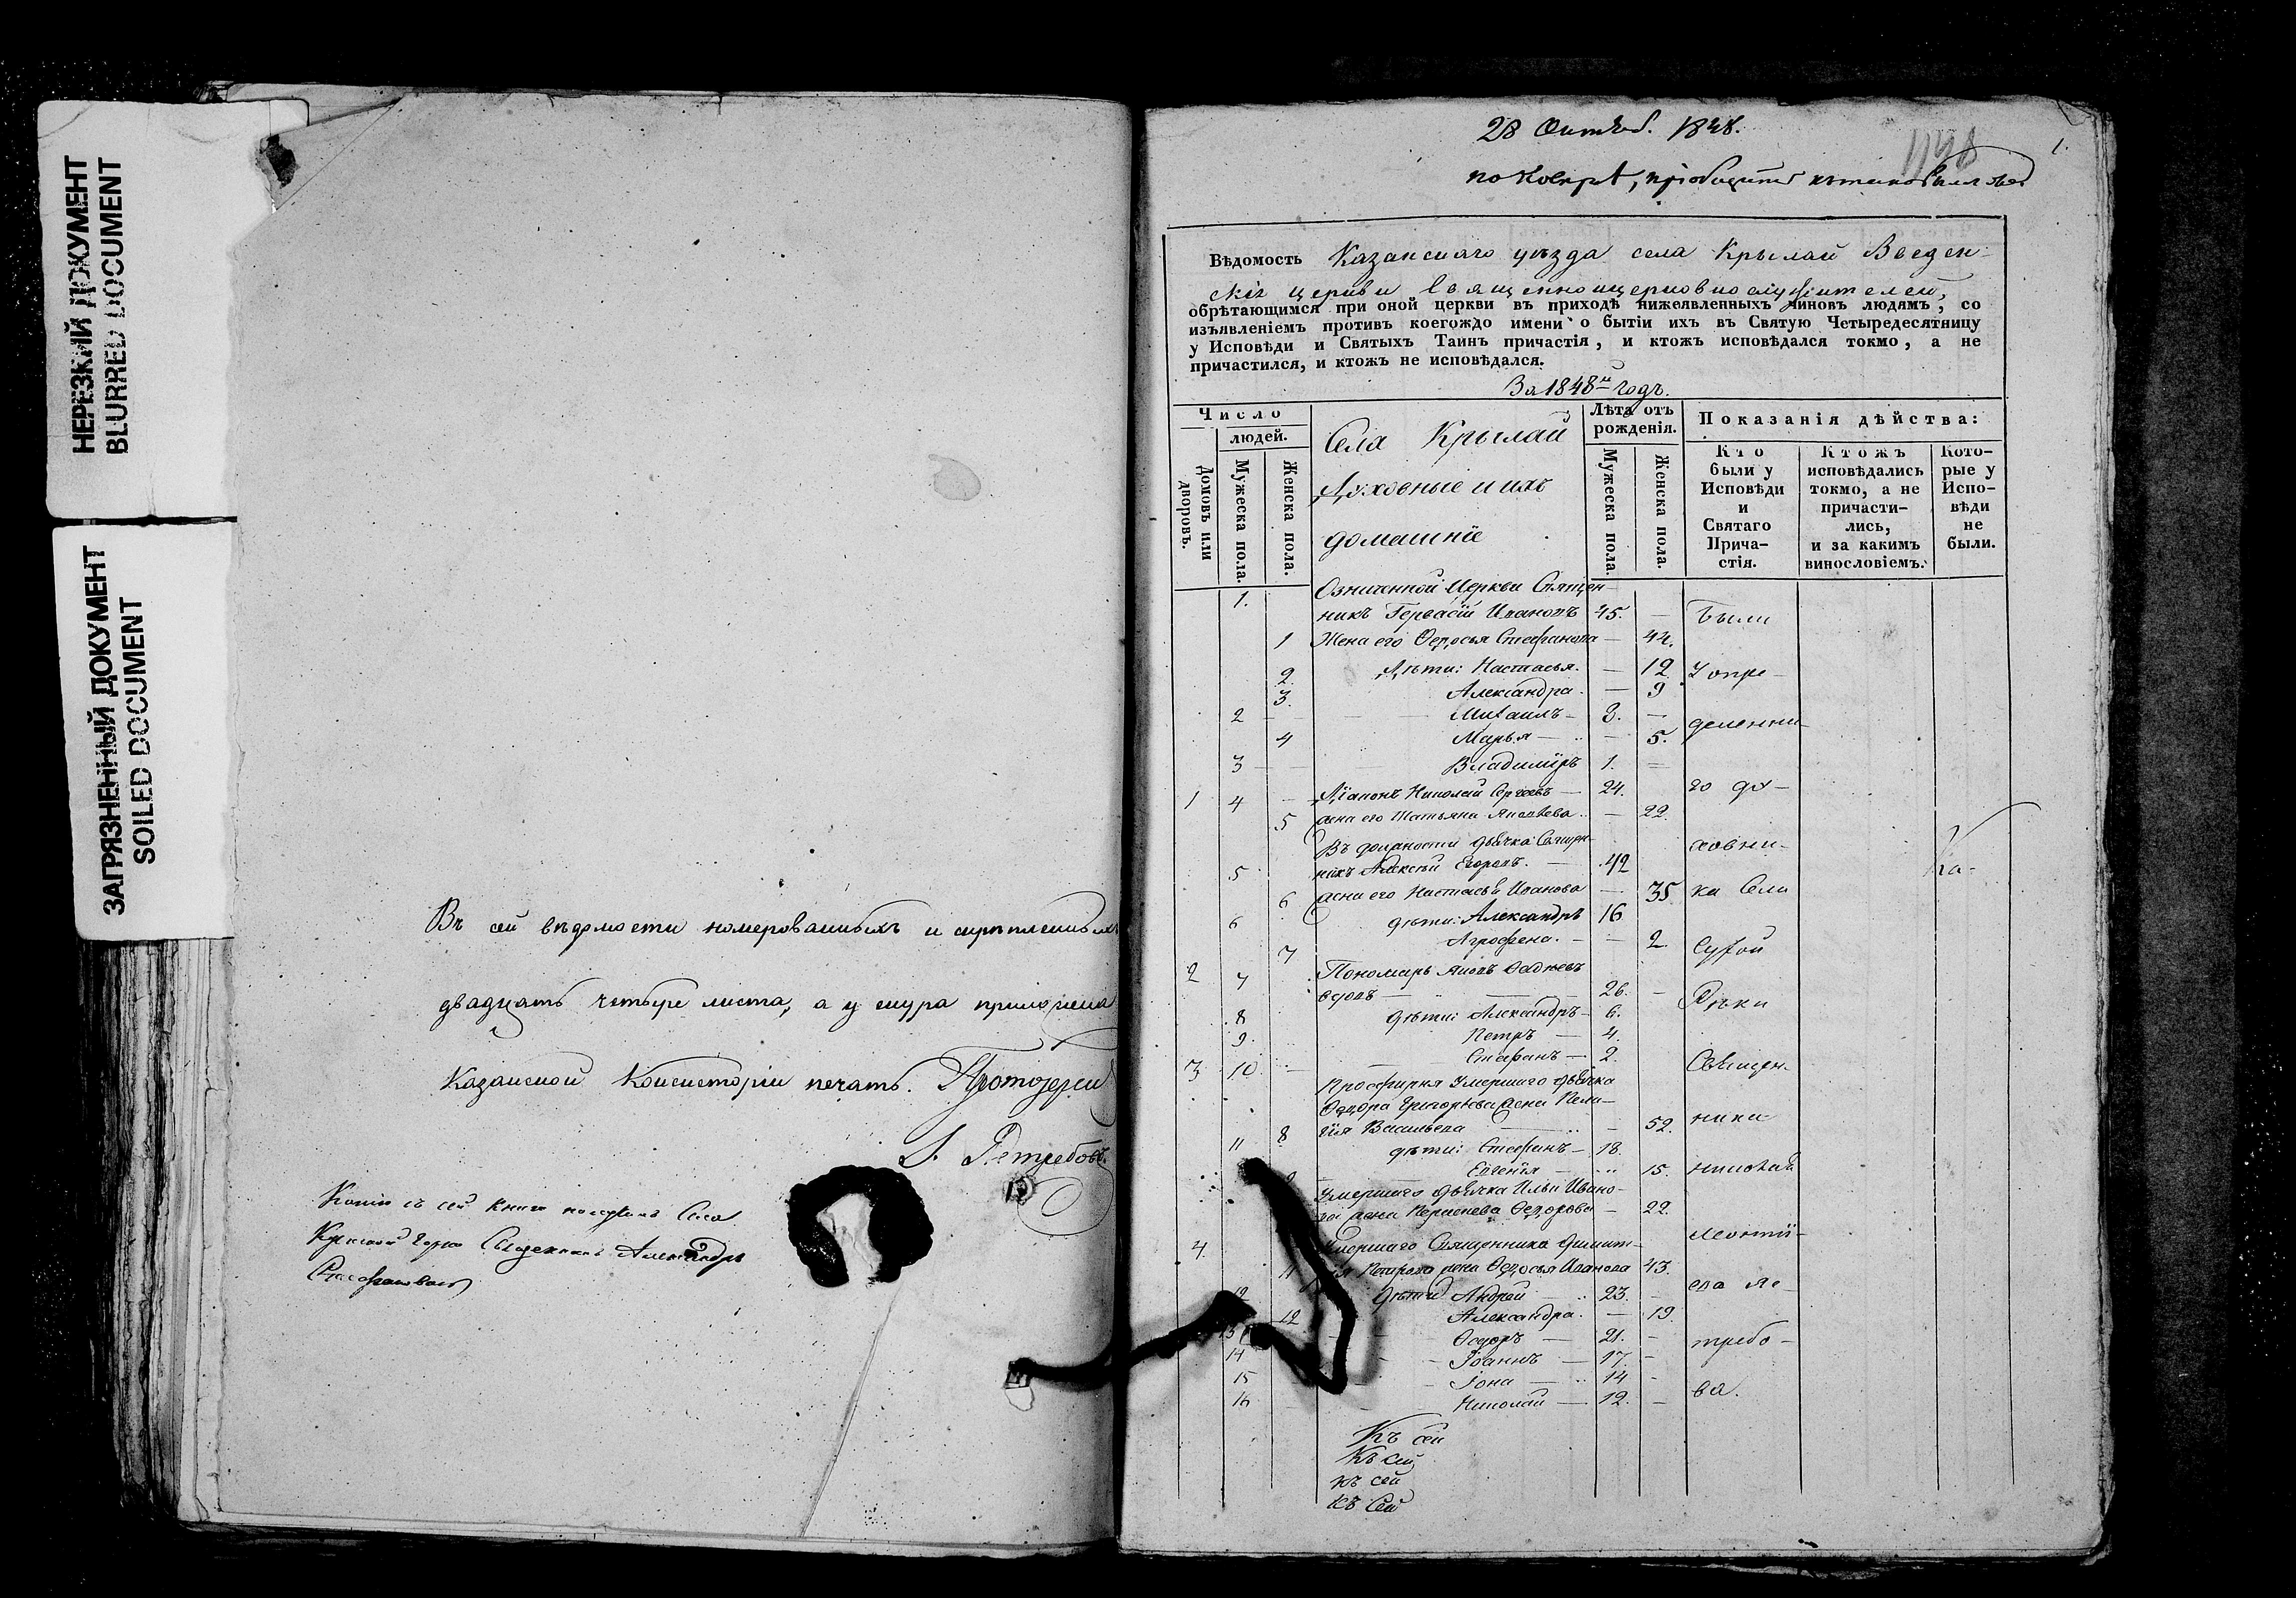 НЕРЕЗКИЙ ДОКУМЕНТ
BLURRED DOCUMENT
ЗАГРЯЗНЕННЫЙ ДОКУМЕНТ
SOILED DOCUMENT
Въ сей вѣдомости номерованныхъ и скрѣпленныхъ
двадцать четыре листа, а у шнура приложена
Казанской Консисторіи печать. Протоіерей
Копію съ сей книги получилъ Села
Священникъ Александръ
28 Октяб. 1848.
1.
Вѣдомость Казанскаго уѣзда села Крылай Введен-
скія церкви священноцерковнослужителей,
обрѣтающимся при оной церкви въ приходѣ нижеявленныхъ чиновъ людямъ, со
изъявленіемъ противъ коегождо имени о бытіи ихъ въ Святую Четыредесятницу
у Исповѣди и Святыхъ Таинъ причастія, и ктожъ исповѣдался токмо, а не
причастился, и ктожъ не исповѣдался.
За 1848й годъ.
Число
людей.
Домовъ или дворовъ.
Мужеска пола.
Женска пола.
Села Крылай
Духовные и ихъ
домашніе
Лѣта отъ
рожденія.
Мужеска пола.
Женска пола.
Показанія дѣйства:
Кто
были у
Исповѣди
и
Святаго
Прича-
стія.
Ктожъ
исповѣдались
токмо, а не
причасти-
лись,
и за какимъ
винословіемъ.
Кото-
рые у
Испо-
вѣди
не
были.
1. Означенной Церкви Священ-
никъ Гервасій Ивановъ 45. — Были
1 Жена его Ѳедосья Стефанова — 44.
2. Дѣти: Настасья. — 12. У опре-
3. Александра. — 9
2 Михаилъ — 3. — дѣленна-
4 Марья — 5.
3 Владиміръ 1. —
1 4 Діаконъ Николай Сергѣевъ — 24. го ду-
5 жена его Татьяна Яковлева — 22.
Въ должности дьячка Священ- ховни-
5 никъ Алексѣй Егоровъ. — 42
6 жена его Настасья Иванова — 35 ка Села
6 дѣти: Александръ 16
7 Агрофена. — 2. Сухой
2 7 Пономарь Яковъ Ѳадѣевъ
вдовъ — 26. — Рѣки
8 дѣти: Александръ — 6.
9. Петръ — 4.
3 10. Стефанъ — 2. Священ-
Просфирня умершаго дьячка
Ѳедора Григорьева жена Пела-
8 гія Васильева — 52. ника
11 дѣти: Стефанъ — 18.
9 Евгенія — 15.
Умершаго дьячка Ильи Ивано-
ва жена Ѳедорова — 22.
4. Умершаго Священника Димит-
11 рія Петрова жена Ѳедосья Иванова 43.
12 Дѣти Андрей — 23. —
12 Александра. — 19.
13 Ѳедоръ — 21. —
14 Іоаннъ — 17. —
15 Іона — 14 —
16 Николай — 12. — ва.
Ка-
Къ сей
Къ сей
къ сей
къ Сей